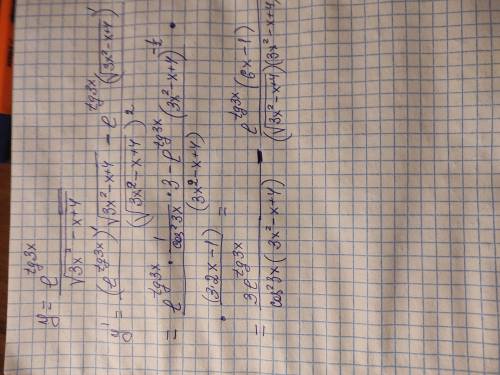 y = e^{tg3x} / √(3x²-x+4)
y' = ((e^{tg3x})' √(3x²-x+4) - e^{tg3x} (√(3x²-x+4))') / (√(3x²-x+4))²
= (e^{tg3x} · 1/cos²3x · 3 - e^{tg3x} (3x²-x+4)^{-1/2} ·) / (3x²-x+4)
· (3·2x-1) =
= 3e^{tg3x} / (cos²3x (3x²-x+4)) - e^{tg3x} (6x-1) / ((√(3x²-x+4))(3x²-x+4))